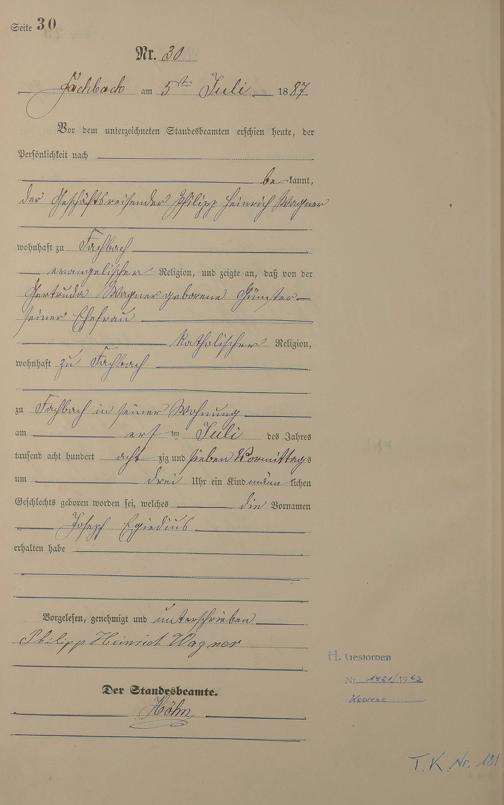 Seite 30
Nr. 30
Fachbach am 5ten Juli 1887
Vor dem unterzeichneten Standesbeamten erschien heute, der
Persönlichkeit nach
be kannt,
der Geschäftsreisender Philipp Heinrich Wagner
wohnhaft zu Fachbach
evangelischer Religion, und zeigte an, daß von der
Gertruda Wagner geborene Günster
seiner Ehefrau
katholischer Religion,
wohnhaft zu Fachbach
zu Fachbach in seiner Wohnung
am ersten Juli des Jahres
tausend acht hundert acht zig und sieben Vormittags
um drei Uhr ein Kind männlichen
Geschlechts geboren worden sei, welches die Vornamen
Joseph Egidius
erhalten habe
Vorgelesen, genehmigt und unterschrieben
Philipp Heinrich Wagner
Der Standesbeamte.
Höhn
H. Gestorben
Nr. 1421/1962
T. K. Nr. 101